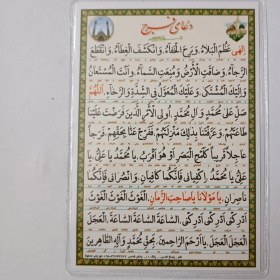 دعای فرج
اِلهی عَظُمَ الْبَلاءُ، وَبَرِحَ الْخَفاءُ، وَانْکَشَفَ الْغِطاءُ، وَانْقَطَعَ
الرَّجاءُ، وَضاقَتِ الْاَرْضُ، وَمُنِعَتِ السَّماءُ، وَاَنْتَ الْمُسْتَعانُ
وَاِلَیْکَ الْمُشْتَکی، وَعَلَیْکَ الْمُعَوَّلُ فِی الشِّدَّةِ وَالرَّخاءِ، اَللّهُمَّ
صَلِّ عَلی مُحَمَّدٍ وَ آلِ مُحَمَّدٍ، اُولِی الْاَمْرِ الَّذینَ فَرَضْتَ عَلَیْنا
طاعَتَهُمْ، وَعَرَّفْتَنا بِذلِکَ مَنْزِلَتَهُمْ، فَفَرِّجْ عَنّا بِحَقِّهِمْ فَرَجاً
عاجِلاً قَریباً کَلَمْحِ الْبَصَرِ اَوْ هُوَ اَقْرَبُ، یا مُحَمَّدُ یا عَلِیُّ، یا
عَلِیُّ یا مُحَمَّدُ، اِکْفِیانی فَاِنَّکُما کافِیانِ، وَانْصُرانی فَاِنَّکُما
ناصِرانِ، یا مَوْلانا یا صاحِبَ الزَّمانِ، الْغَوْثَ الْغَوْثَ الْغَوْثَ
اَدْرِکْنی اَدْرِکْنی اَدْرِکْنی، السّاعَةَ السّاعَةَ السّاعَةَ، الْعَجَلَ
الْعَجَلَ الْعَجَلَ، یا اَرْحَمَ الرّاحِمینَ، بِحَقِّ مُحَمَّدٍ وَ آلِهِ الطّاهِرینَ